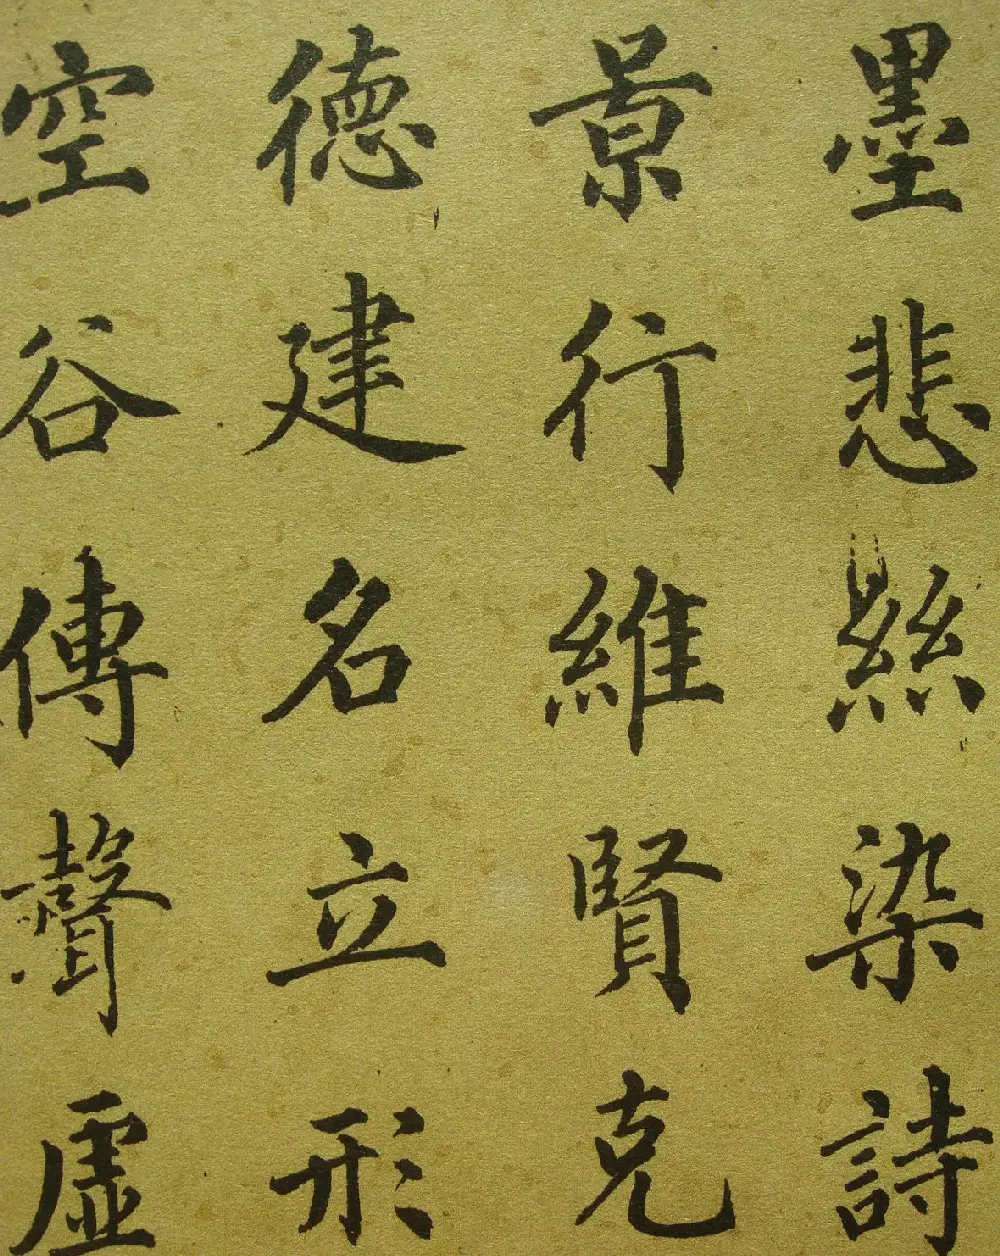 墨悲絲染詩
景行維賢克
德建名立形
空谷傳聲虛